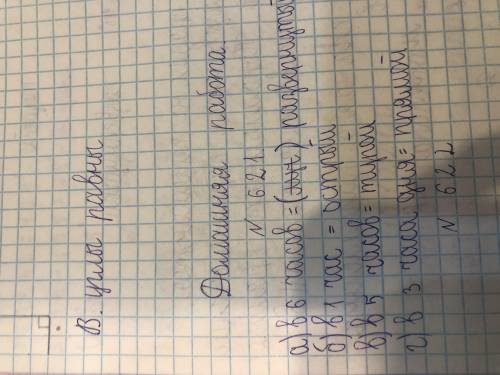 В. углы равны
Домашняя работа
N 621.
а) в 6 часов = развернутый
б) в 1 час = острый
в) в 5 часов = тупой
г) в 3 часа дня = прямой
N 622